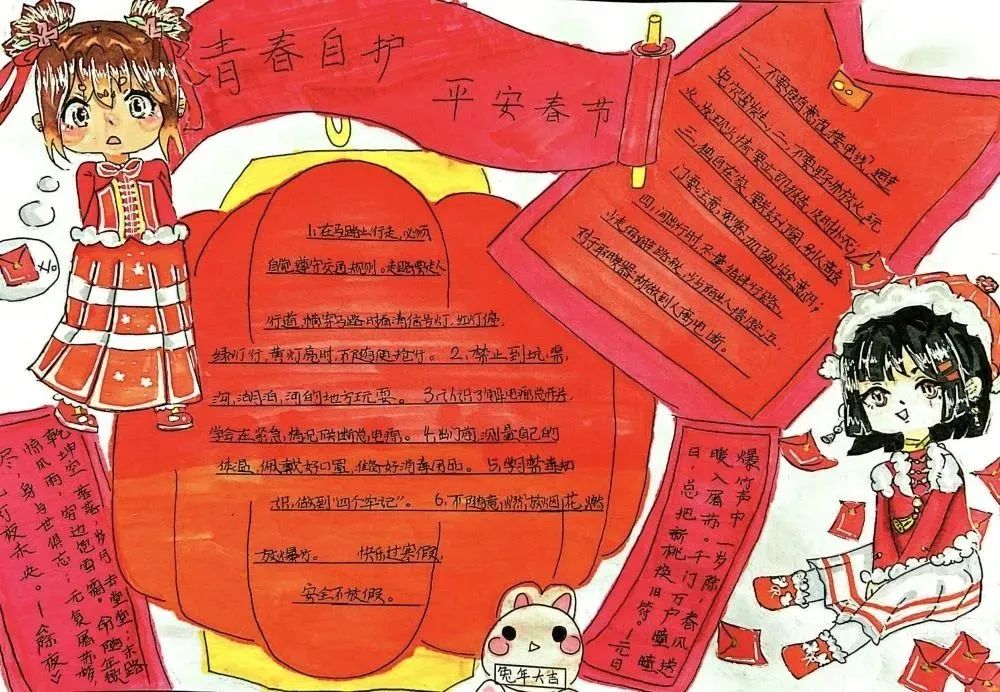 青春自护
平安春节
1、在马路上行走,必须
自觉遵守交通规则。走路要走人
行道,横穿马路时看清信号灯,红灯停,
绿灯行,黄灯亮时,不随便抢行。2、禁止到坑、渠、
沟、湖泊、河的地方玩耍。3、认识了解电源总开关,
学会在紧急情况下关断总电源。4、出门前,测量自己的
体温,佩戴好口罩,准备好消毒用品。5、学习禁毒知
识,做到"四个牢记"。6、不随意燃放烟花,燃
放爆竹。 快乐过寒假,
安全不放假。
一、不要随意乱接电线,避
免火灾发生,二、不要野外放火、玩
火,发现火情要立即报告,及时扑灭;
三、独自在家,要关好门窗,别人敲
四、外出行时,尽量结伴行路,
对于取暖器材做到人离电断。
爆竹声中一岁除,春风送
暖入屠苏。千门万户曈曈
日,总把新桃换旧符。——元日
乾坤空落落,岁月去堂堂;末路
惊风雨,穷边饱雪霜。命随年欲
尽,身与世俱忘;无复屠苏梦,
挑灯夜未央。——《除夜》
兔年大吉